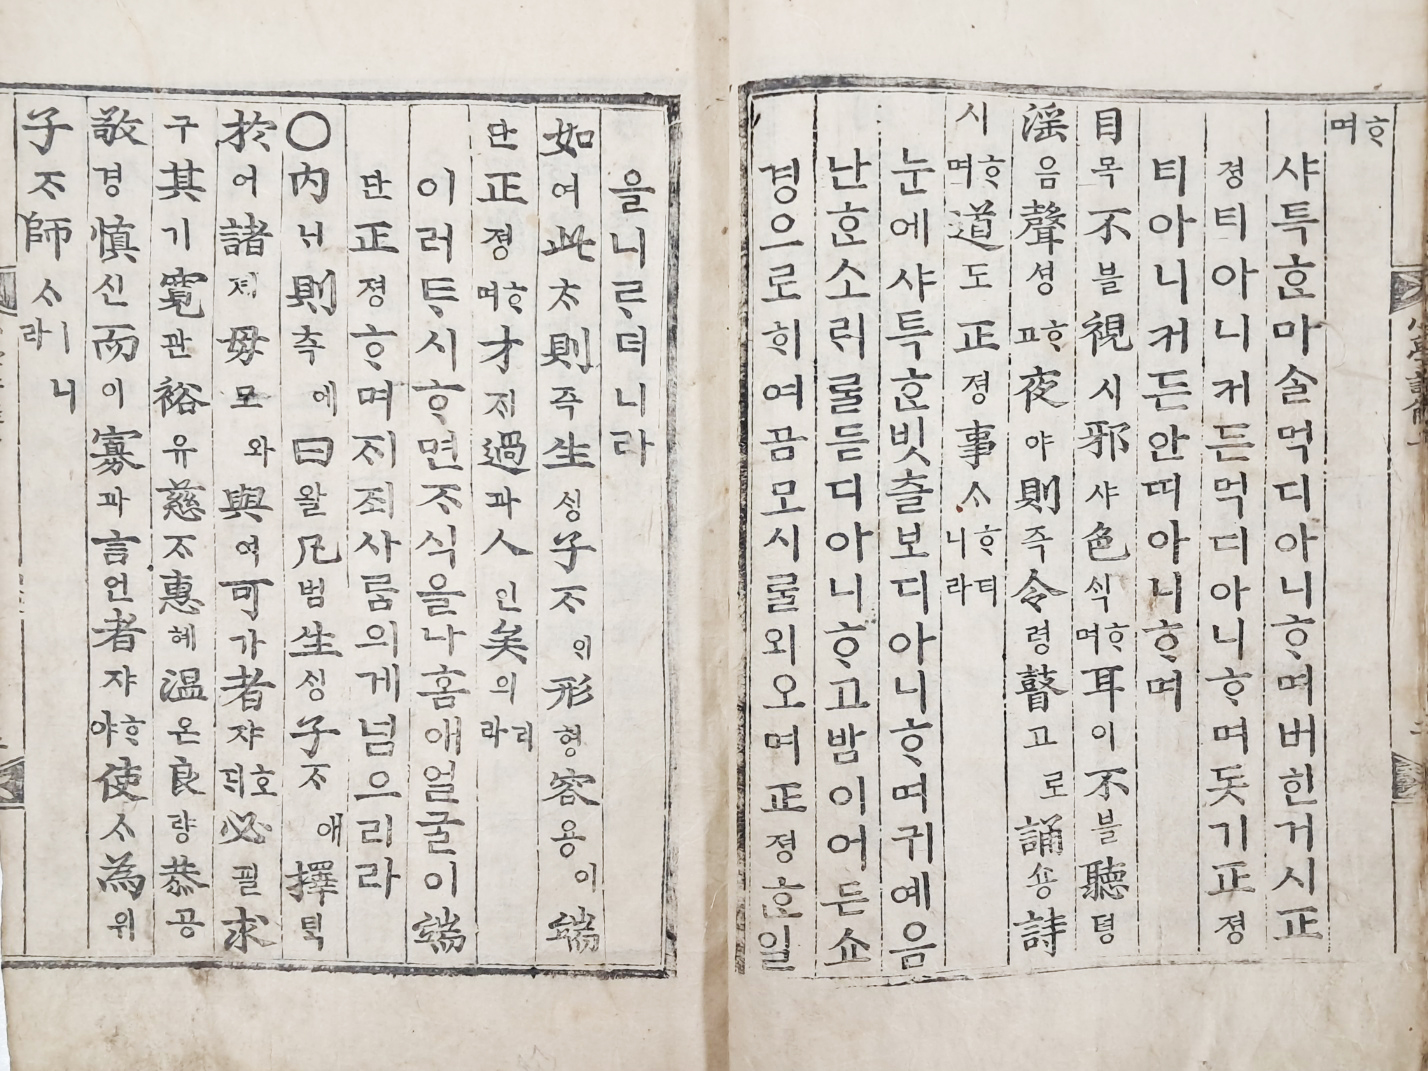 ᄒᆞ며
샤특ᄒᆞᆫ마ᄉᆞᆯ먹디아니ᄒᆞ며버힌거시正
졍티아니커든먹디아니ᄒᆞ며돗기正졍
티아니커든안ᄯᅵ아니ᄒᆞ며
目목不블視시邪샤色ᄉᆡᆨᄒᆞ며耳이不블聽텽
淫음聲셩ᄒᆞ고夜야則즉令령瞽고로誦숑詩
시ᄒᆞ며道도正졍事ᄉᆞᄒᆞ더니라
눈에샤특ᄒᆞᆫ빗ᄎᆞᆯ보디아니ᄒᆞ며귀예음
난ᄒᆞᆫ소ᄅᆡᄅᆞᆯ듣디아니ᄒᆞ고밤이어든쇼
경으로ᄒᆞ여곰모시ᄅᆞᆯ외오며正졍ᄒᆞᆫ일
을니ᄅᆞ더니라
如여此ᄎᆞ則즉生ᄉᆡᆼ子ᄌᆞ의形형容용이端
단正졍ᄒᆞ며才ᄌᆡ過과人인矣의리라
이러ᄐᆞ시ᄒᆞ면ᄌᆞ식을나홈애얼굴이端
단正졍ᄒᆞ며ᄌᆡ죄사ᄅᆞᆷ의게넘으리라
○內ᄂᆡ則측에曰왈凡범生ᄉᆡᆼ子ᄌᆞ애擇ᄐᆡᆨ
於어諸져母모와與여可가者쟈호ᄃᆡ必필求
구其기寬관裕유慈ᄌᆞ惠혜溫온良량恭공
敬경愼신而이寡과言언者쟈ᄒᆞ야使ᄉᆞ爲위
子ᄌᆞ師ᄉᆞㅣ니라